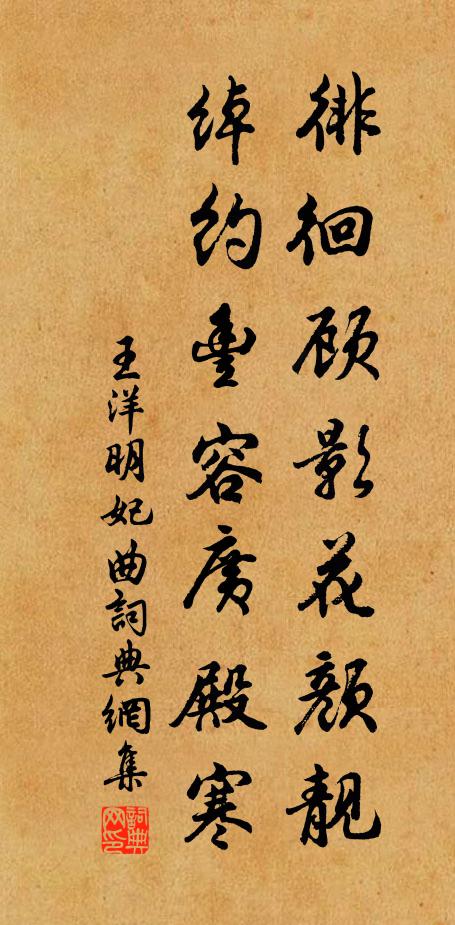 徘徊顾影花颜靓
绰约丰容广殿寒
王洋明妃曲詞典網集
詞典网印